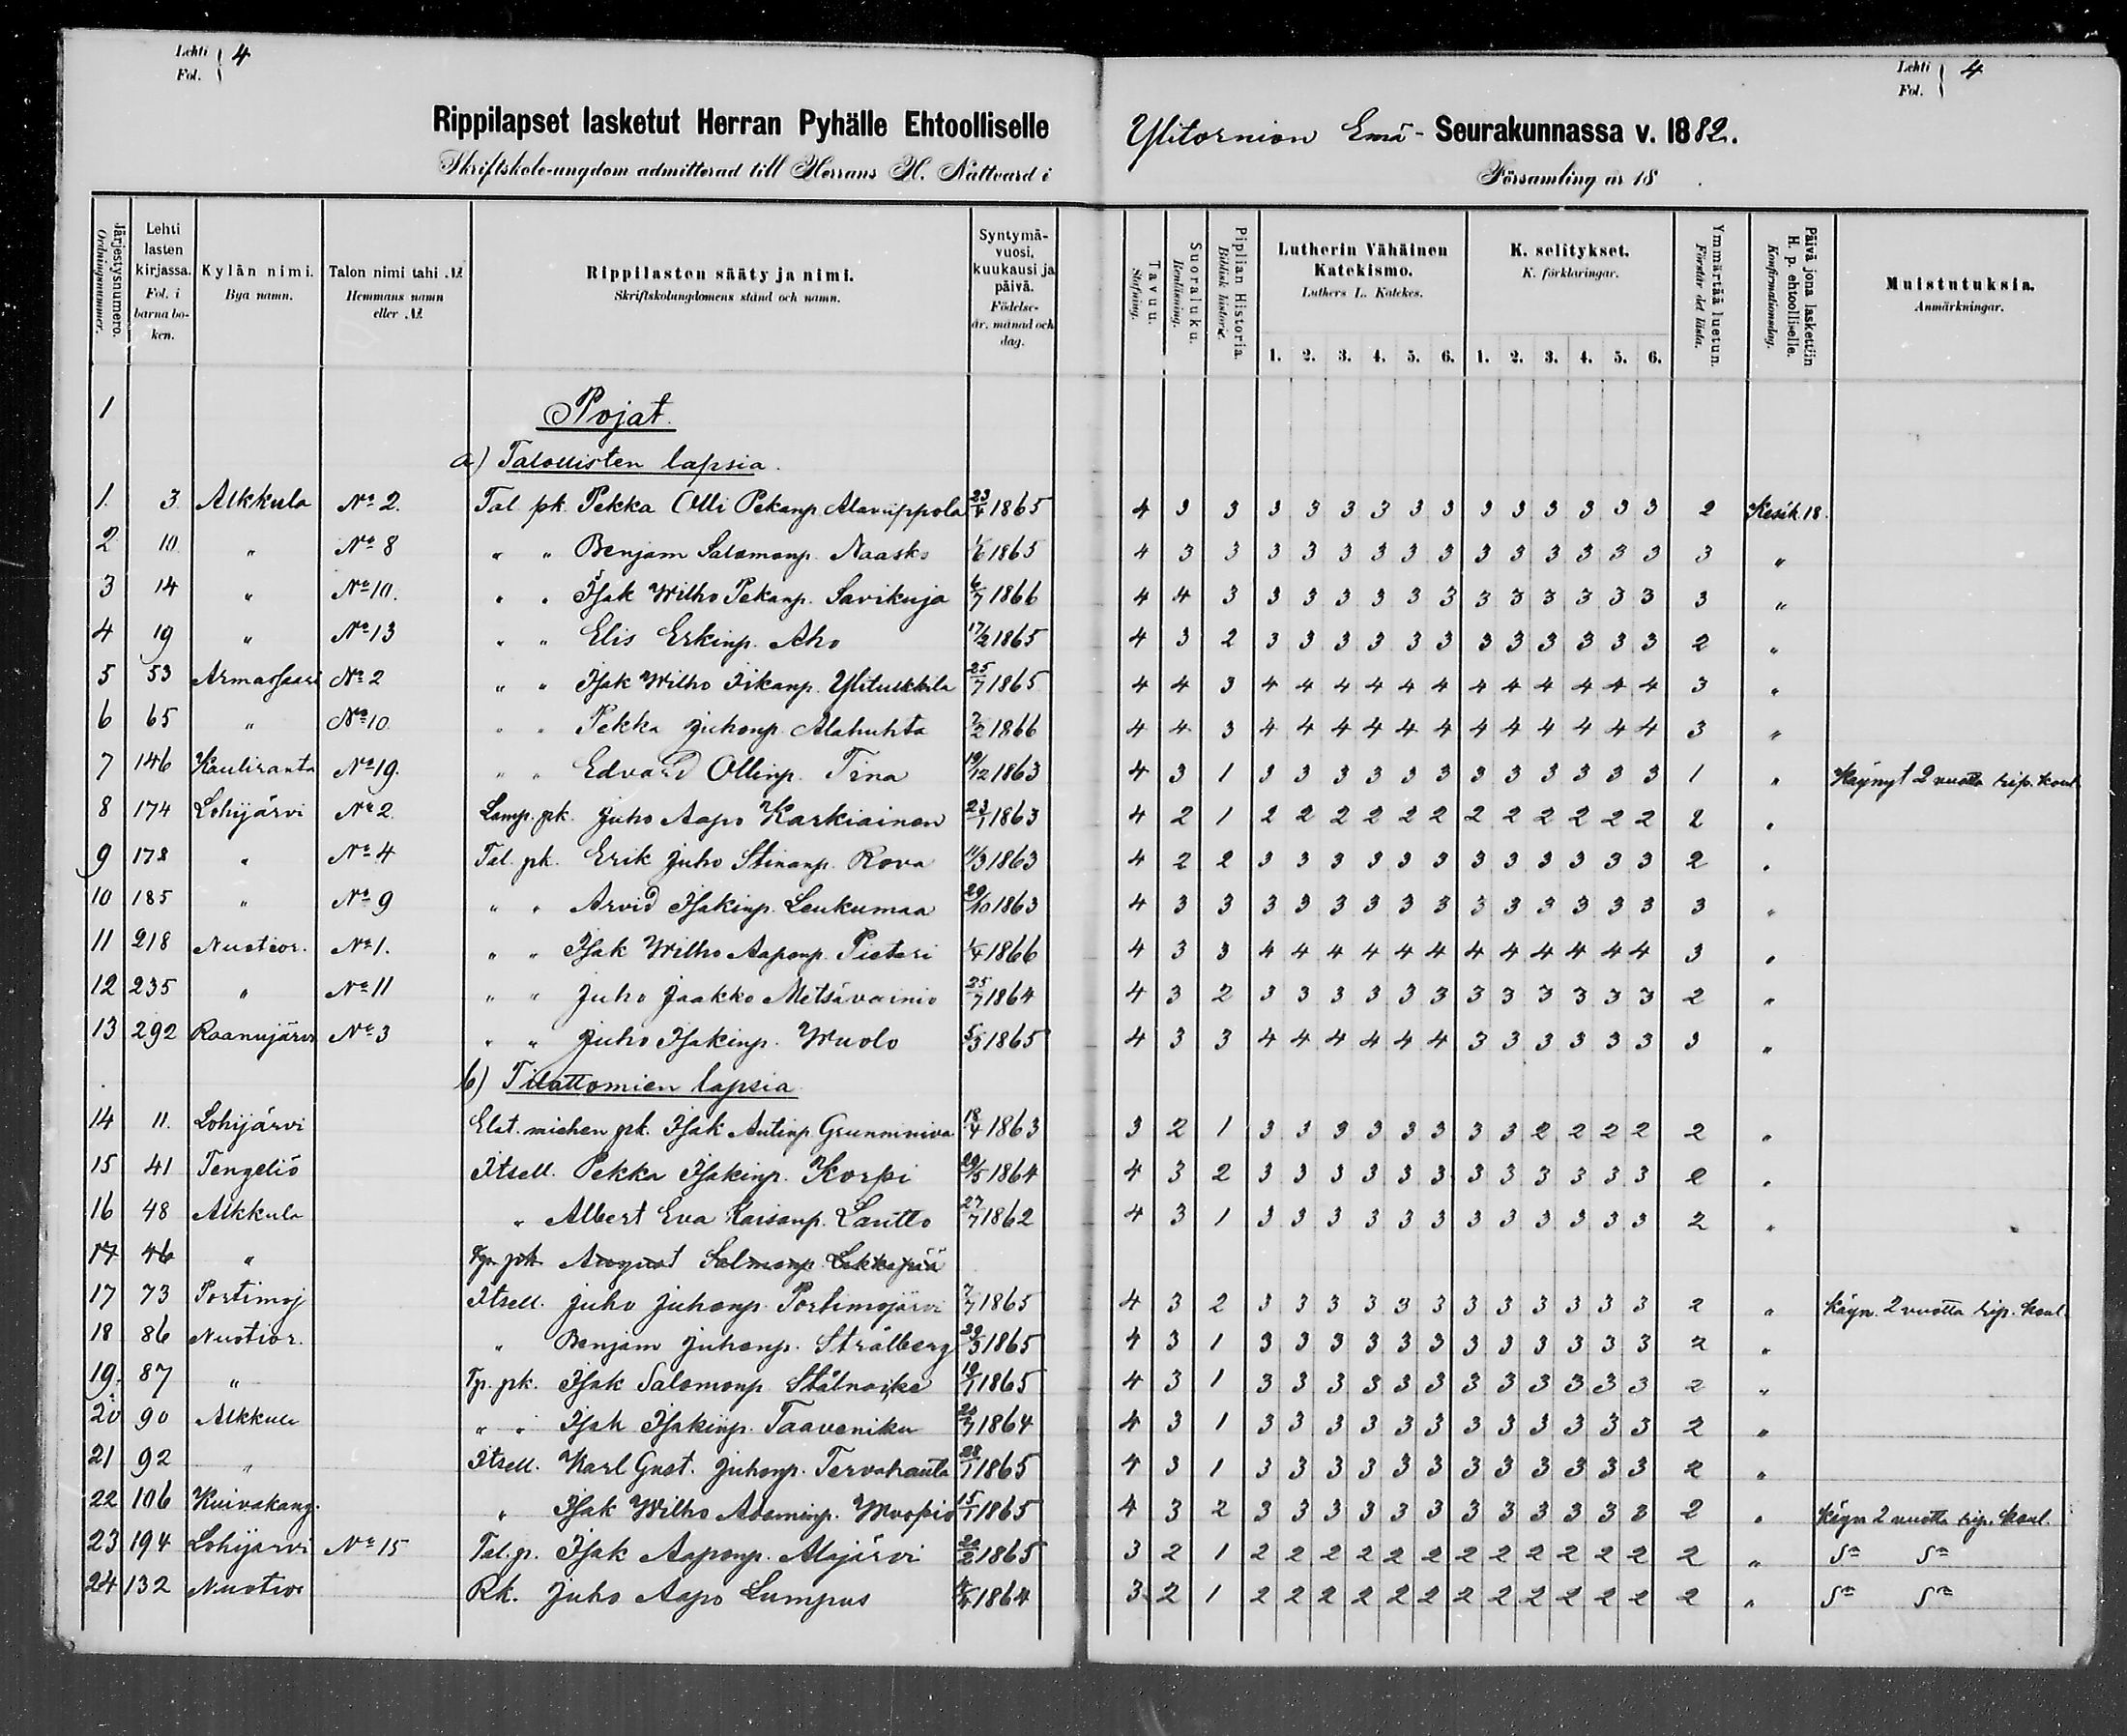 Lehti Fol. 4
Lehti Fol. 4
Rippilapset lasketut Herran Pyhälle Ehtoolliselle Ylitornion Emä - Seurakunnassa v. 1882.
Skriftskole-ungdom admitterad till Herrans H. Nattvard i Församling år 18 .
Järjestysnumero. Ordningsnummer. Lehti lasten kirjassa. Fol. i barnaboken. Kylän nimi. Bya namn. Talon nimi tahi №. Hemmans namn eller №. Rippilasten sääty ja nimi. Skriftskolungdomens stånd och namn. Syntymä-vuosi, kuukausi ja päivä. Födelse-år, månad och dag. Tavuu. Stafning. Suoraluku. Renläsning. Piplian Historia. Biblisk historie. Lutherin Vähäinen Katekismo. Luthers L. Katekes. K. selitykset. K. förklaringar. Ymmärtää luetun. Förstår det lästa. Päivä jona laskettiin H. p. ehtoolliselle. Konfirmationsdag. Muistutuksia. Anmärkningar.
1. 2. 3. 4. 5. 6. 1. 2. 3. 4. 5. 6.
1 Pojat.
a) Talollisten lapsia.
1. 3 Alkkula No 2. Tal. pk. Pekka Olli Pekanp. Alavuppola 23/4 1865 4 3 3 3 3 3 3 3 3 3 3 3 3 3 3 2 Kesäk. 18.
2 10 " No 8 " " Benjam Salomonp. Naasko 1/6 1865 4 3 3 3 3 3 3 3 3 3 3 3 3 3 3 3 "
3 14 " No 10. " " Isak Wilho Pekanp. Savikuja 6/7 1866 4 4 3 3 3 3 3 3 3 3 3 3 3 3 3 3 "
4 19 " No 13 " " Elis Erkinp. Aho 17/2 1865 4 3 2 3 3 3 3 3 3 3 3 3 3 3 3 2 "
5 53 Armassaari No 2 " " Isak Wilho Iikanp. Ylitulkkila 25/7 1865 4 4 3 4 4 4 4 4 4 4 4 4 4 4 4 3 "
6 65 " No 10 " " Pekka Juhonp. Alahuhta 7/2 1866 4 4 3 4 4 4 4 4 4 4 4 4 4 4 4 3 "
7 146 Kauliranta No 19. " " Edvard Ollinp. Tina 19/12 1863 4 3 1 3 3 3 3 3 3 3 3 3 3 3 3 1 " Käynyt 2 vuotta rip. koul.
8 174 Lohijärvi No 2. Lamp. pk. Juho Aapo Karkiainen 23/1 1863 4 2 1 2 2 2 2 2 2 2 2 2 2 2 2 2 "
9 178 " No 4 Tal. pk. Erik Juho Stinanp. Rova 11/3 1863 4 2 2 3 3 3 3 3 3 3 3 3 3 3 3 2 "
10 185 " No 9 " " Arvid Isakinp. Leukumaa 29/10 1863 4 3 3 3 3 3 3 3 3 3 3 3 3 3 3 3 "
11 218 Nuotior. No 1. " " Isak Wilho Aaponp. Pietari 1/4 1866 4 3 3 4 4 4 4 4 4 4 4 4 4 4 4 3 "
12 235 " No 11 " " Juho Jaakko Metsävainio 25/7 1864 4 3 2 3 3 3 3 3 3 3 3 3 3 3 3 2 "
13 292 Raanujärvi No 3 " " Juho Isakinp. Wuolo 5/3 1865 4 3 3 4 4 4 4 4 4 3 3 3 3 3 3 3 "
b) Tilattomien lapsia
14 11. Lohijärvi Elat. miehen pk. Isak Antinp. Grunniniva 18/4 1863 3 2 1 3 3 3 3 3 3 3 3 2 2 2 2 2 "
15 41 Tengeliö Itsell. Pekka Isakinp. Korpi 29/5 1864 4 3 2 3 3 3 3 3 3 3 3 3 3 3 3 2 "
16 48 Alkkula " Albert Eva Kaisanp. Lautto 27/7 1862 4 3 1 3 3 3 3 3 3 3 3 3 3 3 3 2 "
17 46 " Tp. pk. August Salmonp. Lakkapää
17 73 Portimoj Itsell. Juho Juhonp. Portimojärvi 7/7 1865 4 3 2 3 3 3 3 3 3 3 3 3 3 3 3 2 " Käyn. 2 vuotta rip. koul.
18 86 Nuotior. " Benjam Juhonp. Strålberg 30/3 1865 4 3 1 3 3 3 3 3 3 3 3 3 3 3 3 2 "
19. 87 " Tp. pk. Isak Salomonp. Stålnacke 19/1 1865 4 3 1 3 3 3 3 3 3 3 3 3 3 3 3 2 "
20 90 Alkkula " " Isak Isakinp. Taaveniku 1864 4 3 1 3 3 3 3 3 3 3 3 3 3 3 3 2 "
21 92 " Itsell. Karl Gust. Juhonp. Tervahauta 28/1 1865 4 3 1 3 3 3 3 3 3 3 3 3 3 3 3 2 "
22 106 Kuivakang. " Isak Wilho Adaminp. Wuopio 15/1 1865 4 3 2 3 3 3 3 3 3 3 3 3 3 3 3 2 " Käyn 2 vuotta rip. koul.
23 194 Lohijärvi No 15 Tal. p. Isak Aaponp. Alajärvi 20/2 1865 3 2 1 2 2 2 2 2 2 2 2 2 2 2 2 2 " Sa Sa
24 132 Nuotior Rk. Juho Aapo Lumpus 1864 3 2 1 2 2 2 2 2 2 2 2 2 2 2 2 2 " Sa Sa